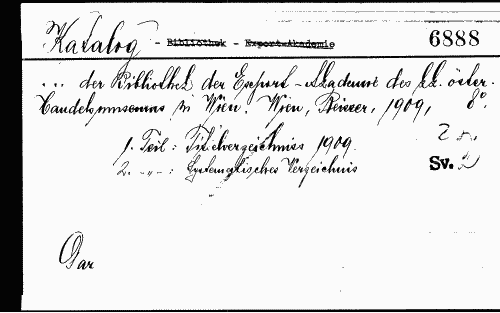 Katalog - Bibliothek - Export-Akademie 6888
... der Bibliothek der Export-Akademie des k.k. österr.
Handelsmuseums in Wien. Wien, Reisser, 1909, 8°.
1. Teil: Titelverzeichniss 1909.
2. -„-: Systematisches Verzeichnis
Sv. 2
Dar